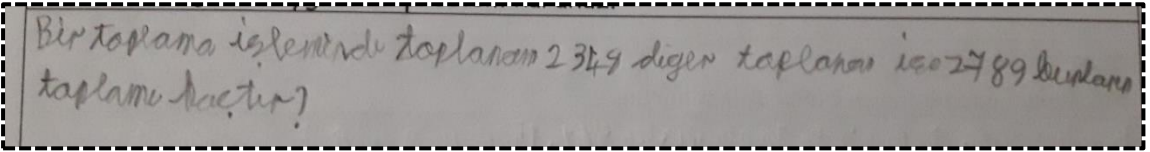 Bir toplama işleminde toplanan 2349 diğer toplanan ise 2789 bunların
toplamı kaçtır?